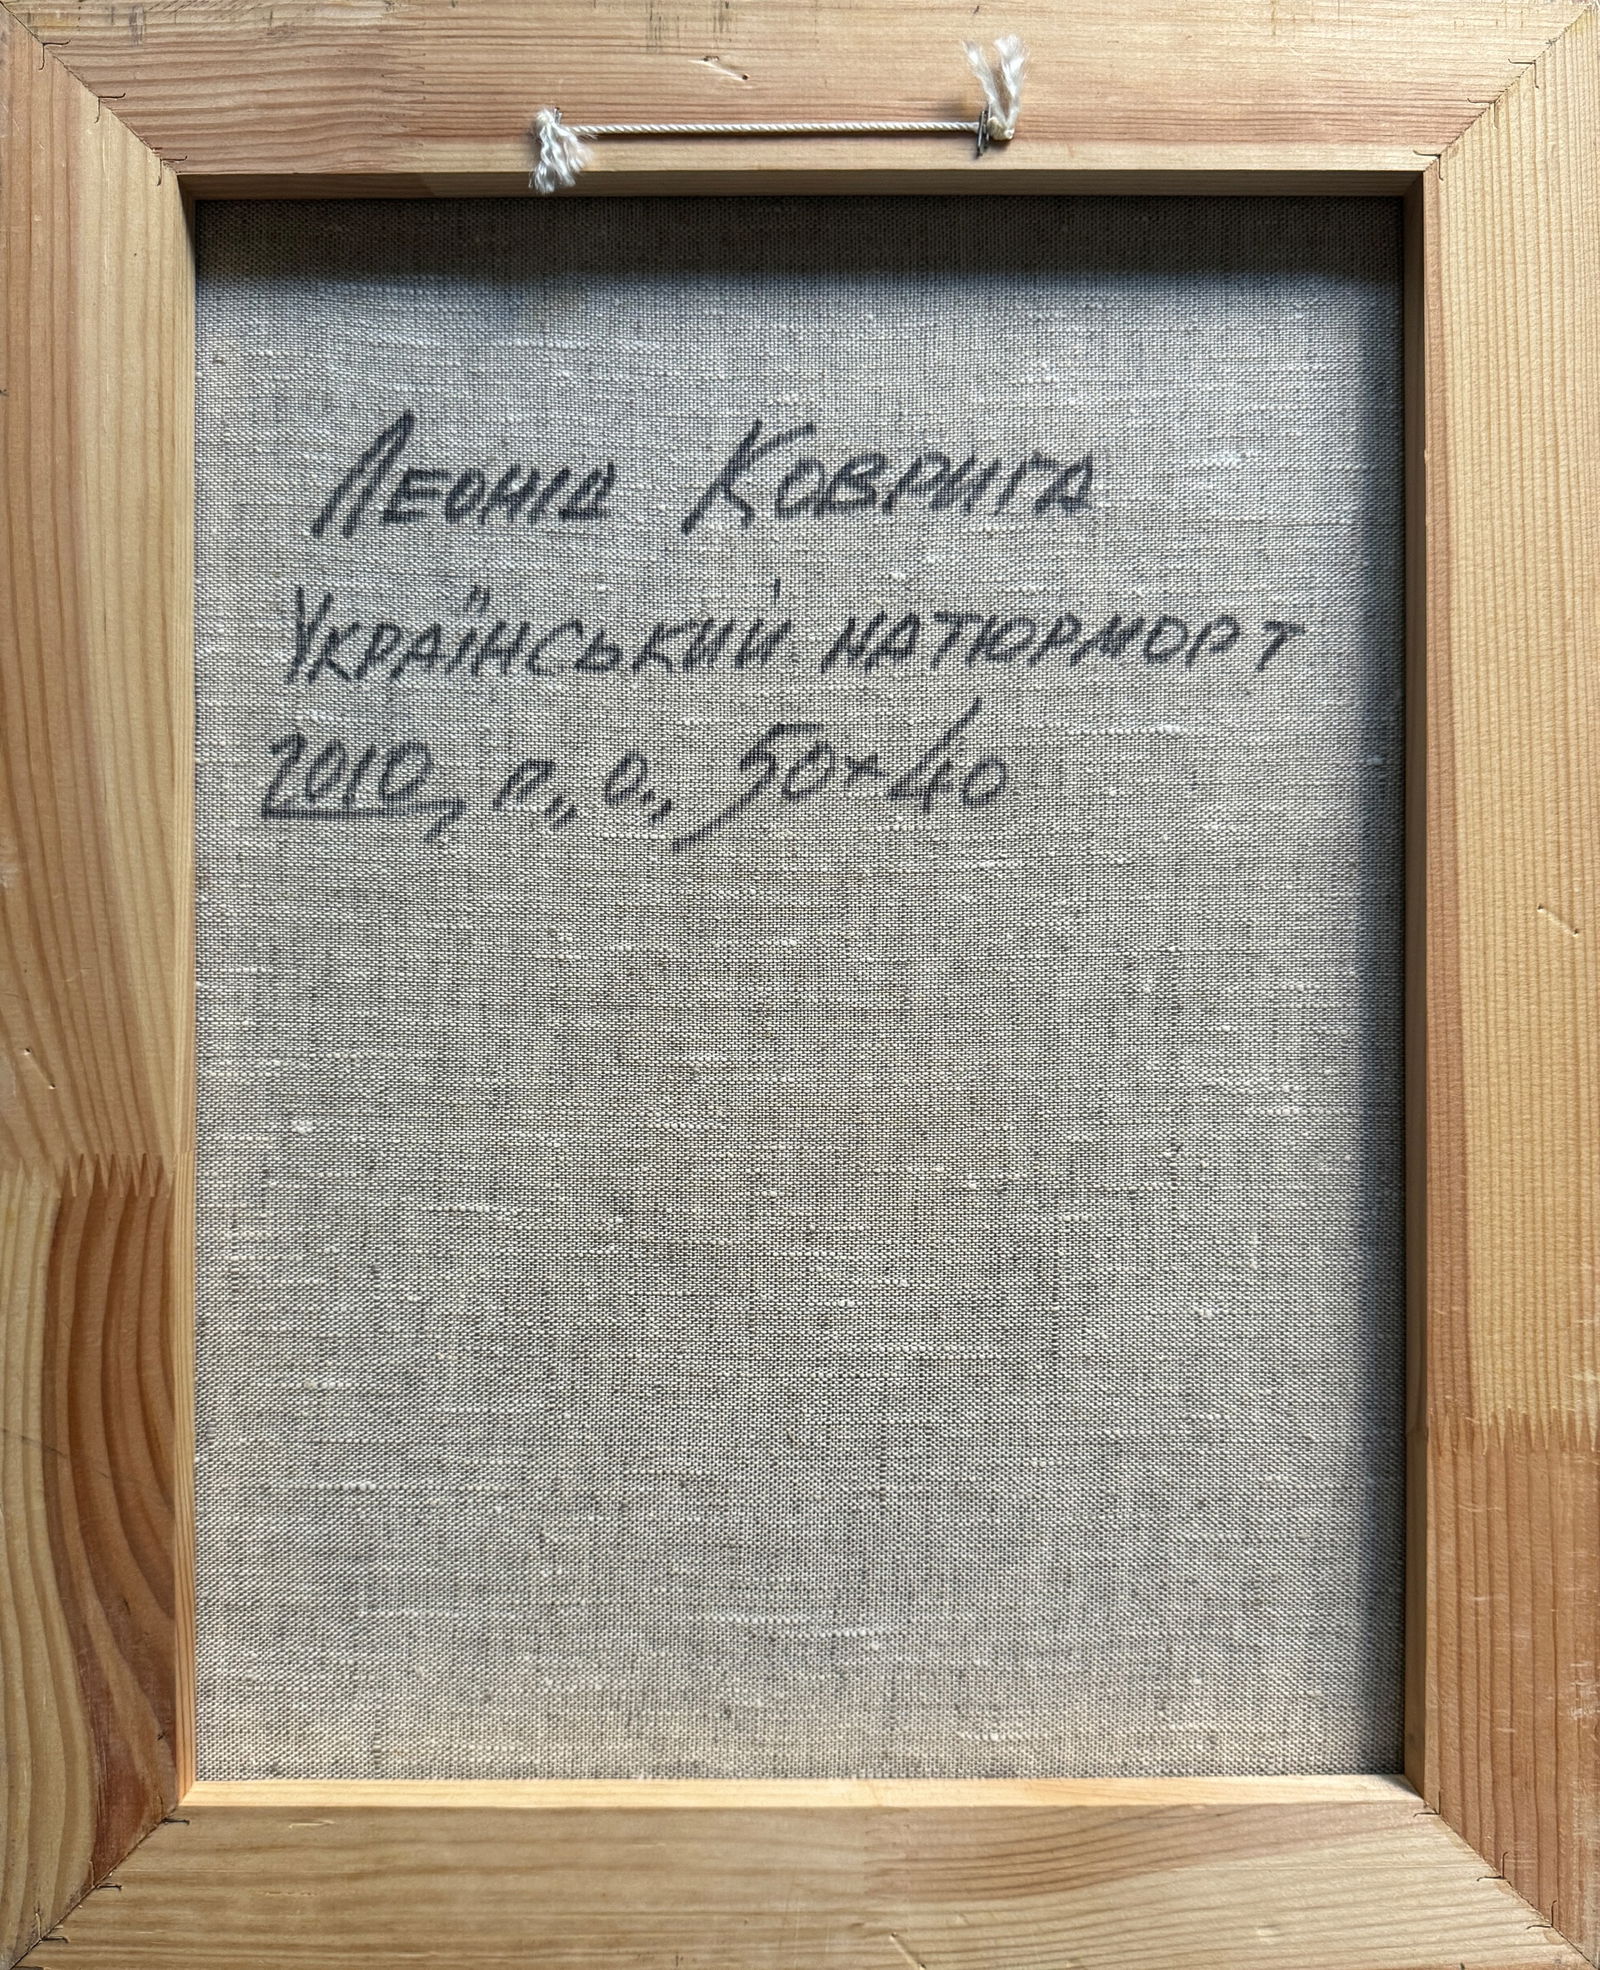 Леонід Коврига
Український натюрморт
2010, п., о., 50×40